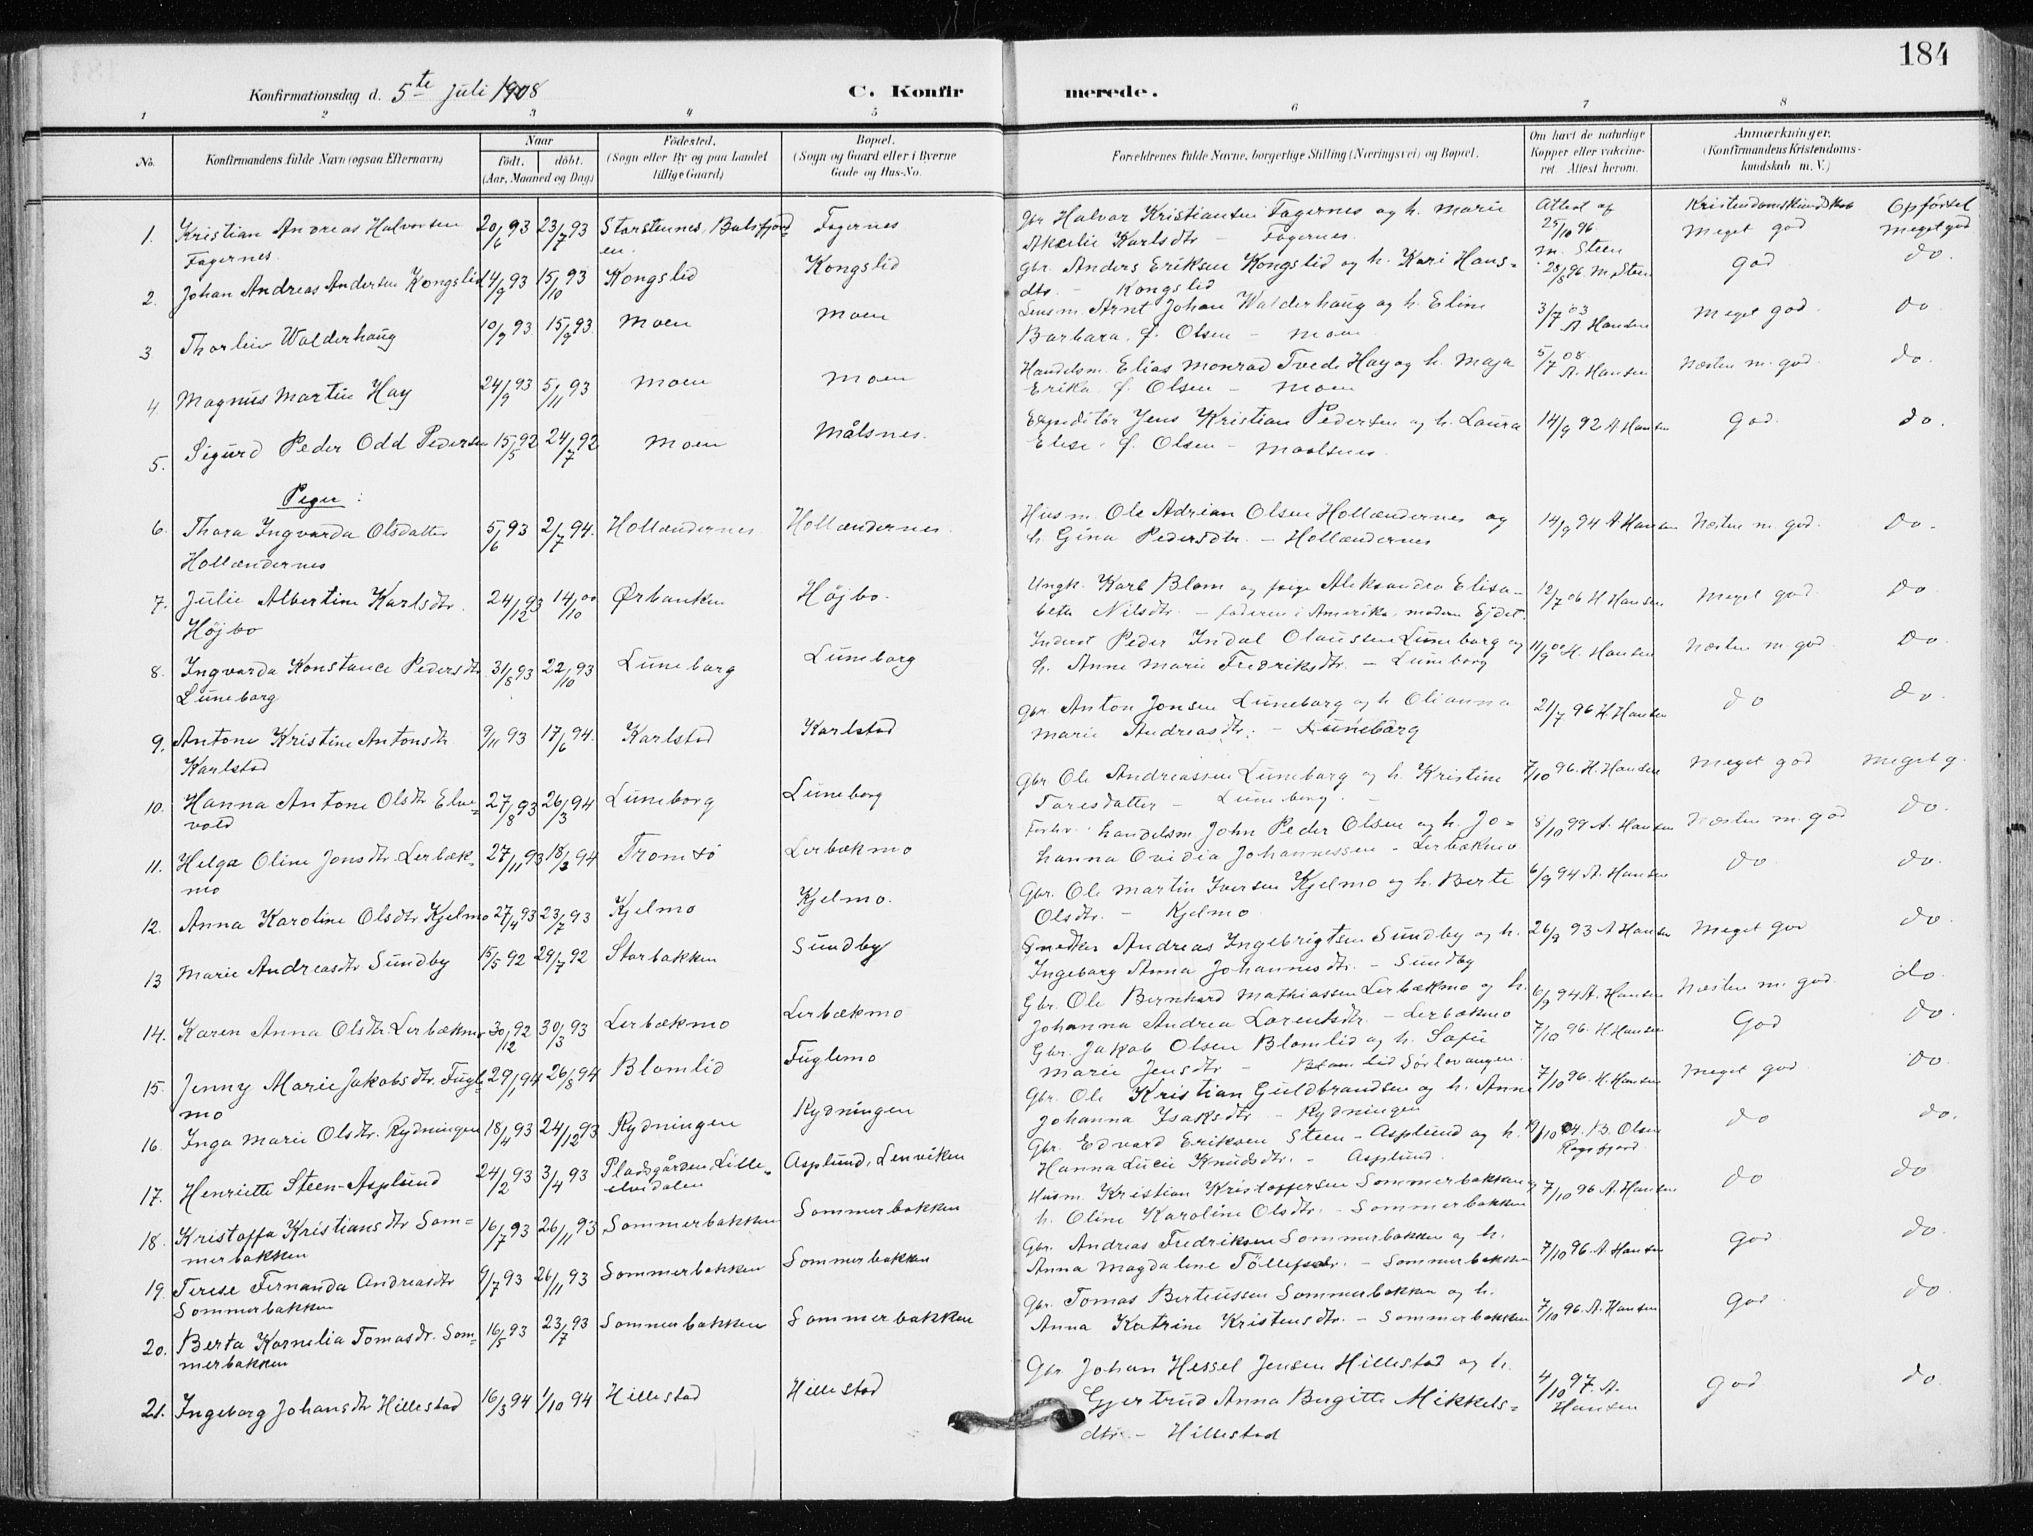 184
Konfirmationsdag d. 5te Juli 1908
C. Konfirmerede.
1 2 3 4 5 6 7 8
No. Konfirmandens fulde Navn (ogsaa Efternavn) Naar födt. döbt. (Aar, Maaned og Dag) Födested. (Sogn eller By og paa Landet tillige Gaard) Bopæl. (Sogn og Gaard eller i Byerne Gade og Hus-No. Forældrenes fulde Navne, borgerlige Stilling (Næringsvei) og Bopæl. Om havt de naturlige Kopper eller vakcineret. Attest herom. Anmærkninger. (Konfirmandens Kristendomskundskab m. V.)
Kristendomskundskab Opförsel
1. Kristian Andreas Halvorsen 20/6 93 23/7 93 Storstennes, Balsfjord- Fagernes Gbr Halvor Kristiansen Fagernes og h. Marie Attest af 25/10 96 Meget god Meget god
Fagernes. en. Karlsdtr – Fagernes. M. Steen
2. Johan Andreas Andersen Kongslid 14/9 93 15/10 93 Kongslid Kongslid Gbr. Anders Eriksen Kongslid og h. Kari Hans= 28/8 96. M. Steen god do.
dtr. – Kongslid
3 Thorleiv Walderhaug 10/9 93 15/9 93. Moen Moen Lensm. Arnt Johan Walderhaug og h. Eline 3/7 03 A Hansen Meget god. do
Barbara, f. Olsen – Moen
4. Magnus Martin Hay 24/9 93 5/11 93 Moen Moen Handelsm. Elias Monrad Tvede Hay og h. Maja 5/7 08 A. Hansen Næsten m. god. do.
Erika f. Olsen – Moen
5. Sigurd Peder Odd Pedersen 15/5 92 24/7 92 Moen Målsnes. Expeditör Jens Kristian Pedersen og h. Laura 14/9 92 A Hansen God. do.
Elise f. Olsen – Maalsnes.
Piger:
6. Thora Ingvarda Olsdatter 5/6 93 2/7 94. Hollændernes. Hollændernes. Husm. Ole Adrian Olsen Hollændernes og 14/9 94 A Hansen Næsten m. god. do.
Hollændernes h. Gina Pedersdtr. – Hollændernes
7. Julie Albertine Karlsdtr. 24/12 93 14/10 00 Ørbanken Højbo. Ungk. Karl Blom og pige Aleksandra Elisa- 12/7 06 H Hansen Meget god. do
Højbo beth Nilsdtr. – faderen i Amerika, modern Ejdet.
8. Ingvarda Konstance Pedersdtr 31/8 93 22/10 93 Luneborg Luneborg Inderst Peder Indal Olaussen Luneborg og 11/9 00 H. Hansen Næsten m. god. do.
Luneborg h. Anne Marie Fredriksdtr. – Luneborg
9. Antone Kristine Antonsdtr. 9/11 93 17/6 94. Karlstad Karlstad Gbr Anton Jonsen Luneborg og h Olianna 21/7 96 H. Hansen do do.
Karlstad Marie Andreasdtr. – Luneborg
10. Hanna Antone Olsdtr Elve- 27/8 93 26/3 94 Luneborg Luneborg Gbr Ole Andreassen Luneborg og h. Kristine 7/10 96. H. Hansen Meget god Meget g.
vold Toresdatter – Luneborg.
11. Helga Oline Jonsdtr. Lerbæk- 27/11 93 18/3 94 Tromsö Lerbækmo Forhv. handelsm. John Peder Olsen og h. Jo= 8/10 99 A. Hansen Næsten m. god do.
mo hanna Ovidia Johannessen – Lerbækmo
12. Anna Karoline Olsdtr Kjelmo 27/4 93 23/7 93 Kjelmo Kjelmo. Gbr. Ole Martin Iversen Kjelmo og h. Berte 6/9 94 A. Hansen do do.
Olsdtr. – Kjelmo
13 Marie Andreasdtr Sundby 15/5 92 29/7 92 Storbakken Sundby Snedker Andreas Ingebrigtsen Sundby og h. 26/9 93 A Hansen Meget god do.
Ingeborg Anna Johannesdtr. – Sundby
14. Karen Anna Olsdtr. Lerbækmo 30/12 92 30/3 93 Lerbækmo Lerbækmo Gbr. Ole Bernhard Mathiassen Lerbækmo og h. 6/9 94 A. Hansen Næsten m. god. do.
Johanna Andrea Lorentsdtr. – Lerbækmo
15. Jenny Marie Jakobsdtr. Fugl- 29/1 94 26/8 94 Blomlid Fuglemo Gbr. Jakob Olsen Blomlid og h. Sofie 7/10 96. H. Hansen God do.
mo Marie Jensdtr – Blomlid Sörlavangen.
16. Inga Marie Olsdtr. Rydningen 18/4 93 24/12 93 Rydningen Rydningen Gbr. Ole Kristian Guldbrandsen og h. Anne 7/10 96. H. Hansen Meget god do
Johanna Isaksdtr – Rydningen
17. Henriette Steen-Asplund 24/2 93 3/4 93 Pladsgården, Lille- Asplund, Lenviken Gbr. Edvard Eriksen Steen – Asplund og h. /10 04. B. Olsen do do.
elvedalen Hanna Lucie Knudsdtr. – Asplund.
18. Kristoffa Kristiansdtr Som= 16/7 93 26/11 93 Sommerbakken Sommerbakken Husm. Kristian Kristoffersen Sommerbakken og 7/10 96 A. Hansen do do
merbakken h. Oline Karoline Olsdtr. – Sommerbakken
19. Terese Fernanda Andreasdtr 9/7 93 26/11 93 Sommerbakken Sommerbakken Gbr. Andreas Fredriksen Sommerbakken og h. 7/10 96. A. Hansen God do.
Sommerbakken Anna Magdaline – Sommerbakken
20. Berta Kornelia Tomasdr. Som= 16/5 93 23/7 93 Sommerbakken Sommerbakken Gbr. Tomas Berteussen Sommerbakken og h. 7/10 96. A. Hansen God do
merbakken Anna Katrine Kristensdtr. – Sommerbakken
21. Ingeborg Johansdtr Hillestad 16/3 94 1/10 94 Hillestad Hillestad Gbr Johan Hessel Jensen Hillestad og h. 4/10 97. A. Hansen God do.
Gjertrud Anna Birgitte Mikkels=
dtr. – Hillestad